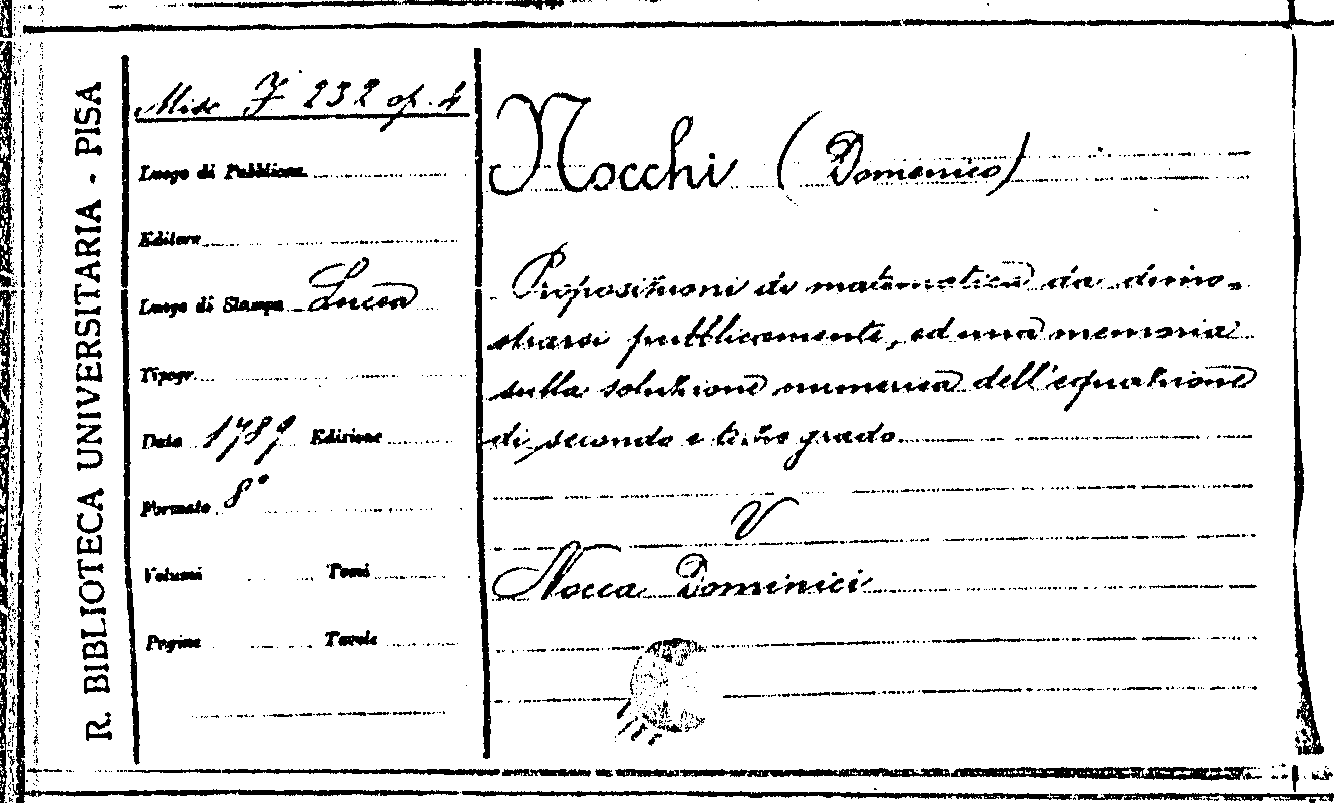 R. BIBLIOTECA UNIVERSITARIA - PISA
Misc F 232 op. 4
Luogo di Pubblicaz.
Editore
Luogo di Stampa Lucca
Tipogr.
Data 1789 Edizione
Formato 8°
Volumi Tomi
Pagine Tavole
Nocchi (Domenico)
Proposizioni di matematica da dimo-
strarsi pubblicamente, ed una memoria
sulla soluzione numerica dell'equazione
di secondo e terzo grado
V
Nocca Dominici